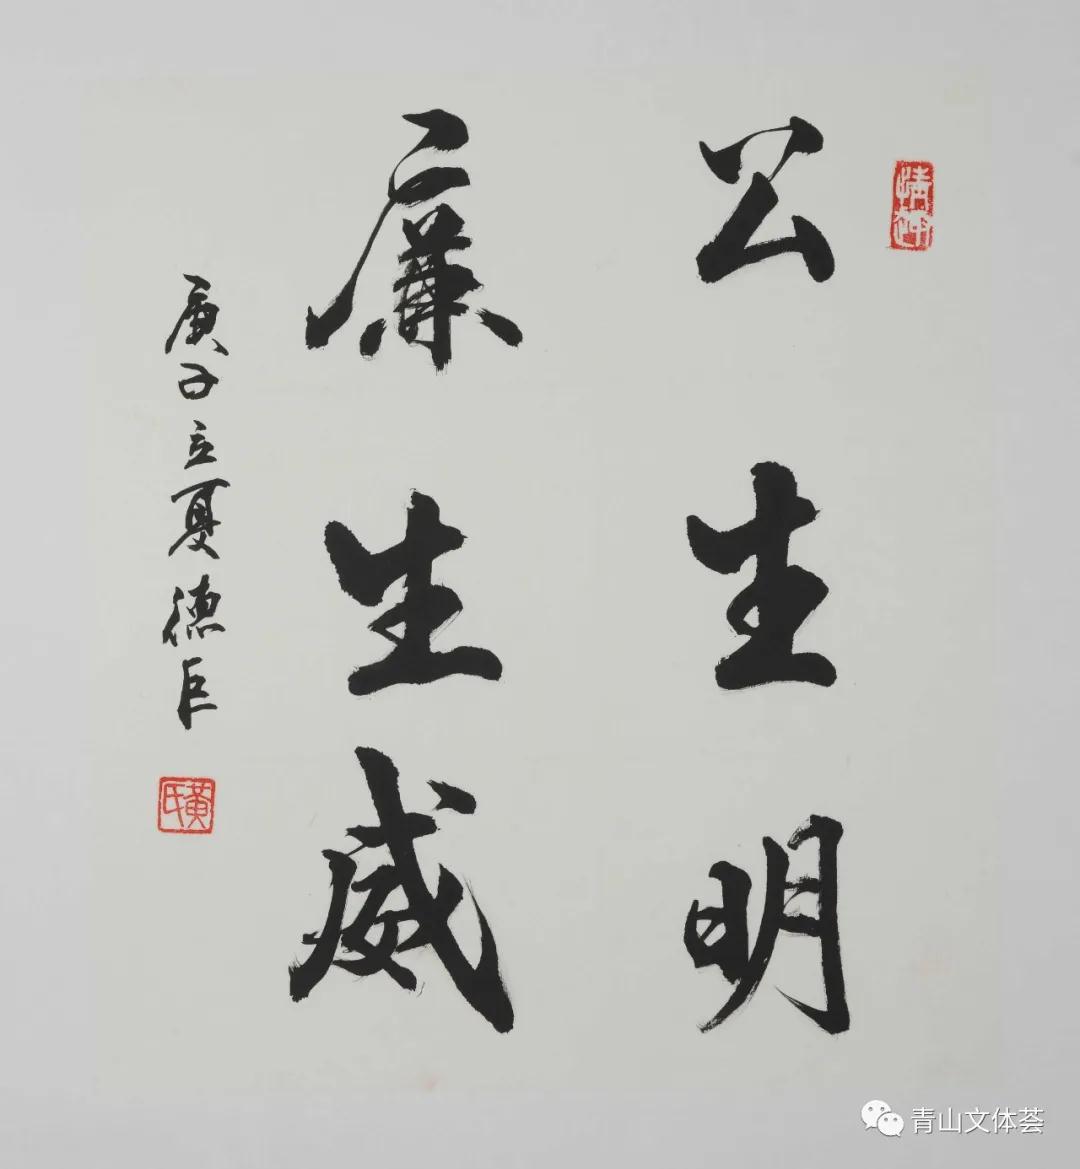 公生明
廉生威
庚子立夏德巨
黄氏
青山文体荟